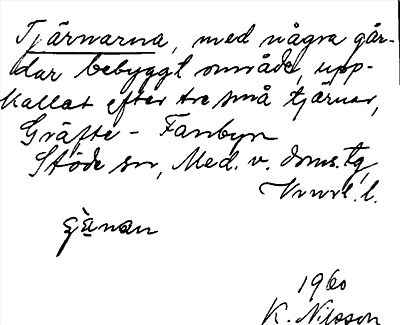 Tjärnarna, med några går-
dar bebyggt område, upp-
kallat efter tre små tjärnar,
Gräfte - Fanbyn
Stöde sn, Med. v. doms. tg,
Vnrl. l.
1960
K. Nilsson